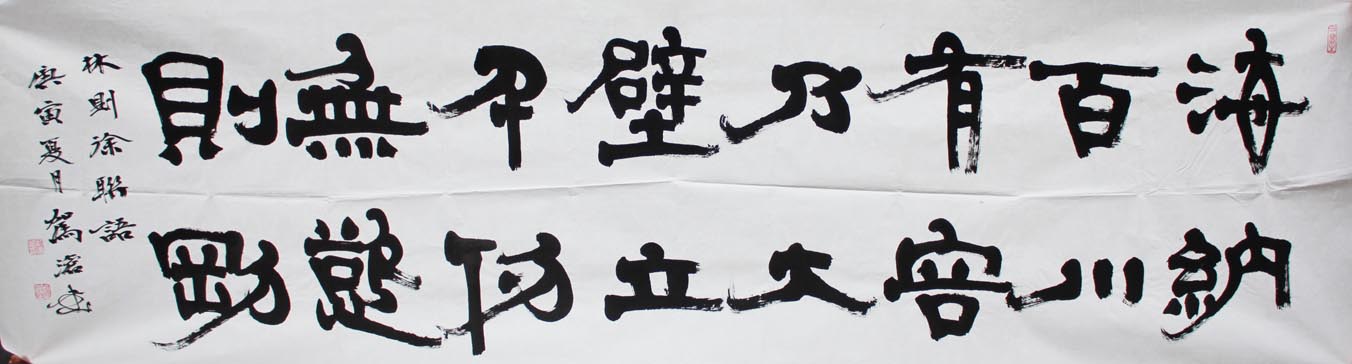 海納
百川
有容
乃大
壁立
千仞
無慾
則剛
林則徐聯語
庚寅夏月